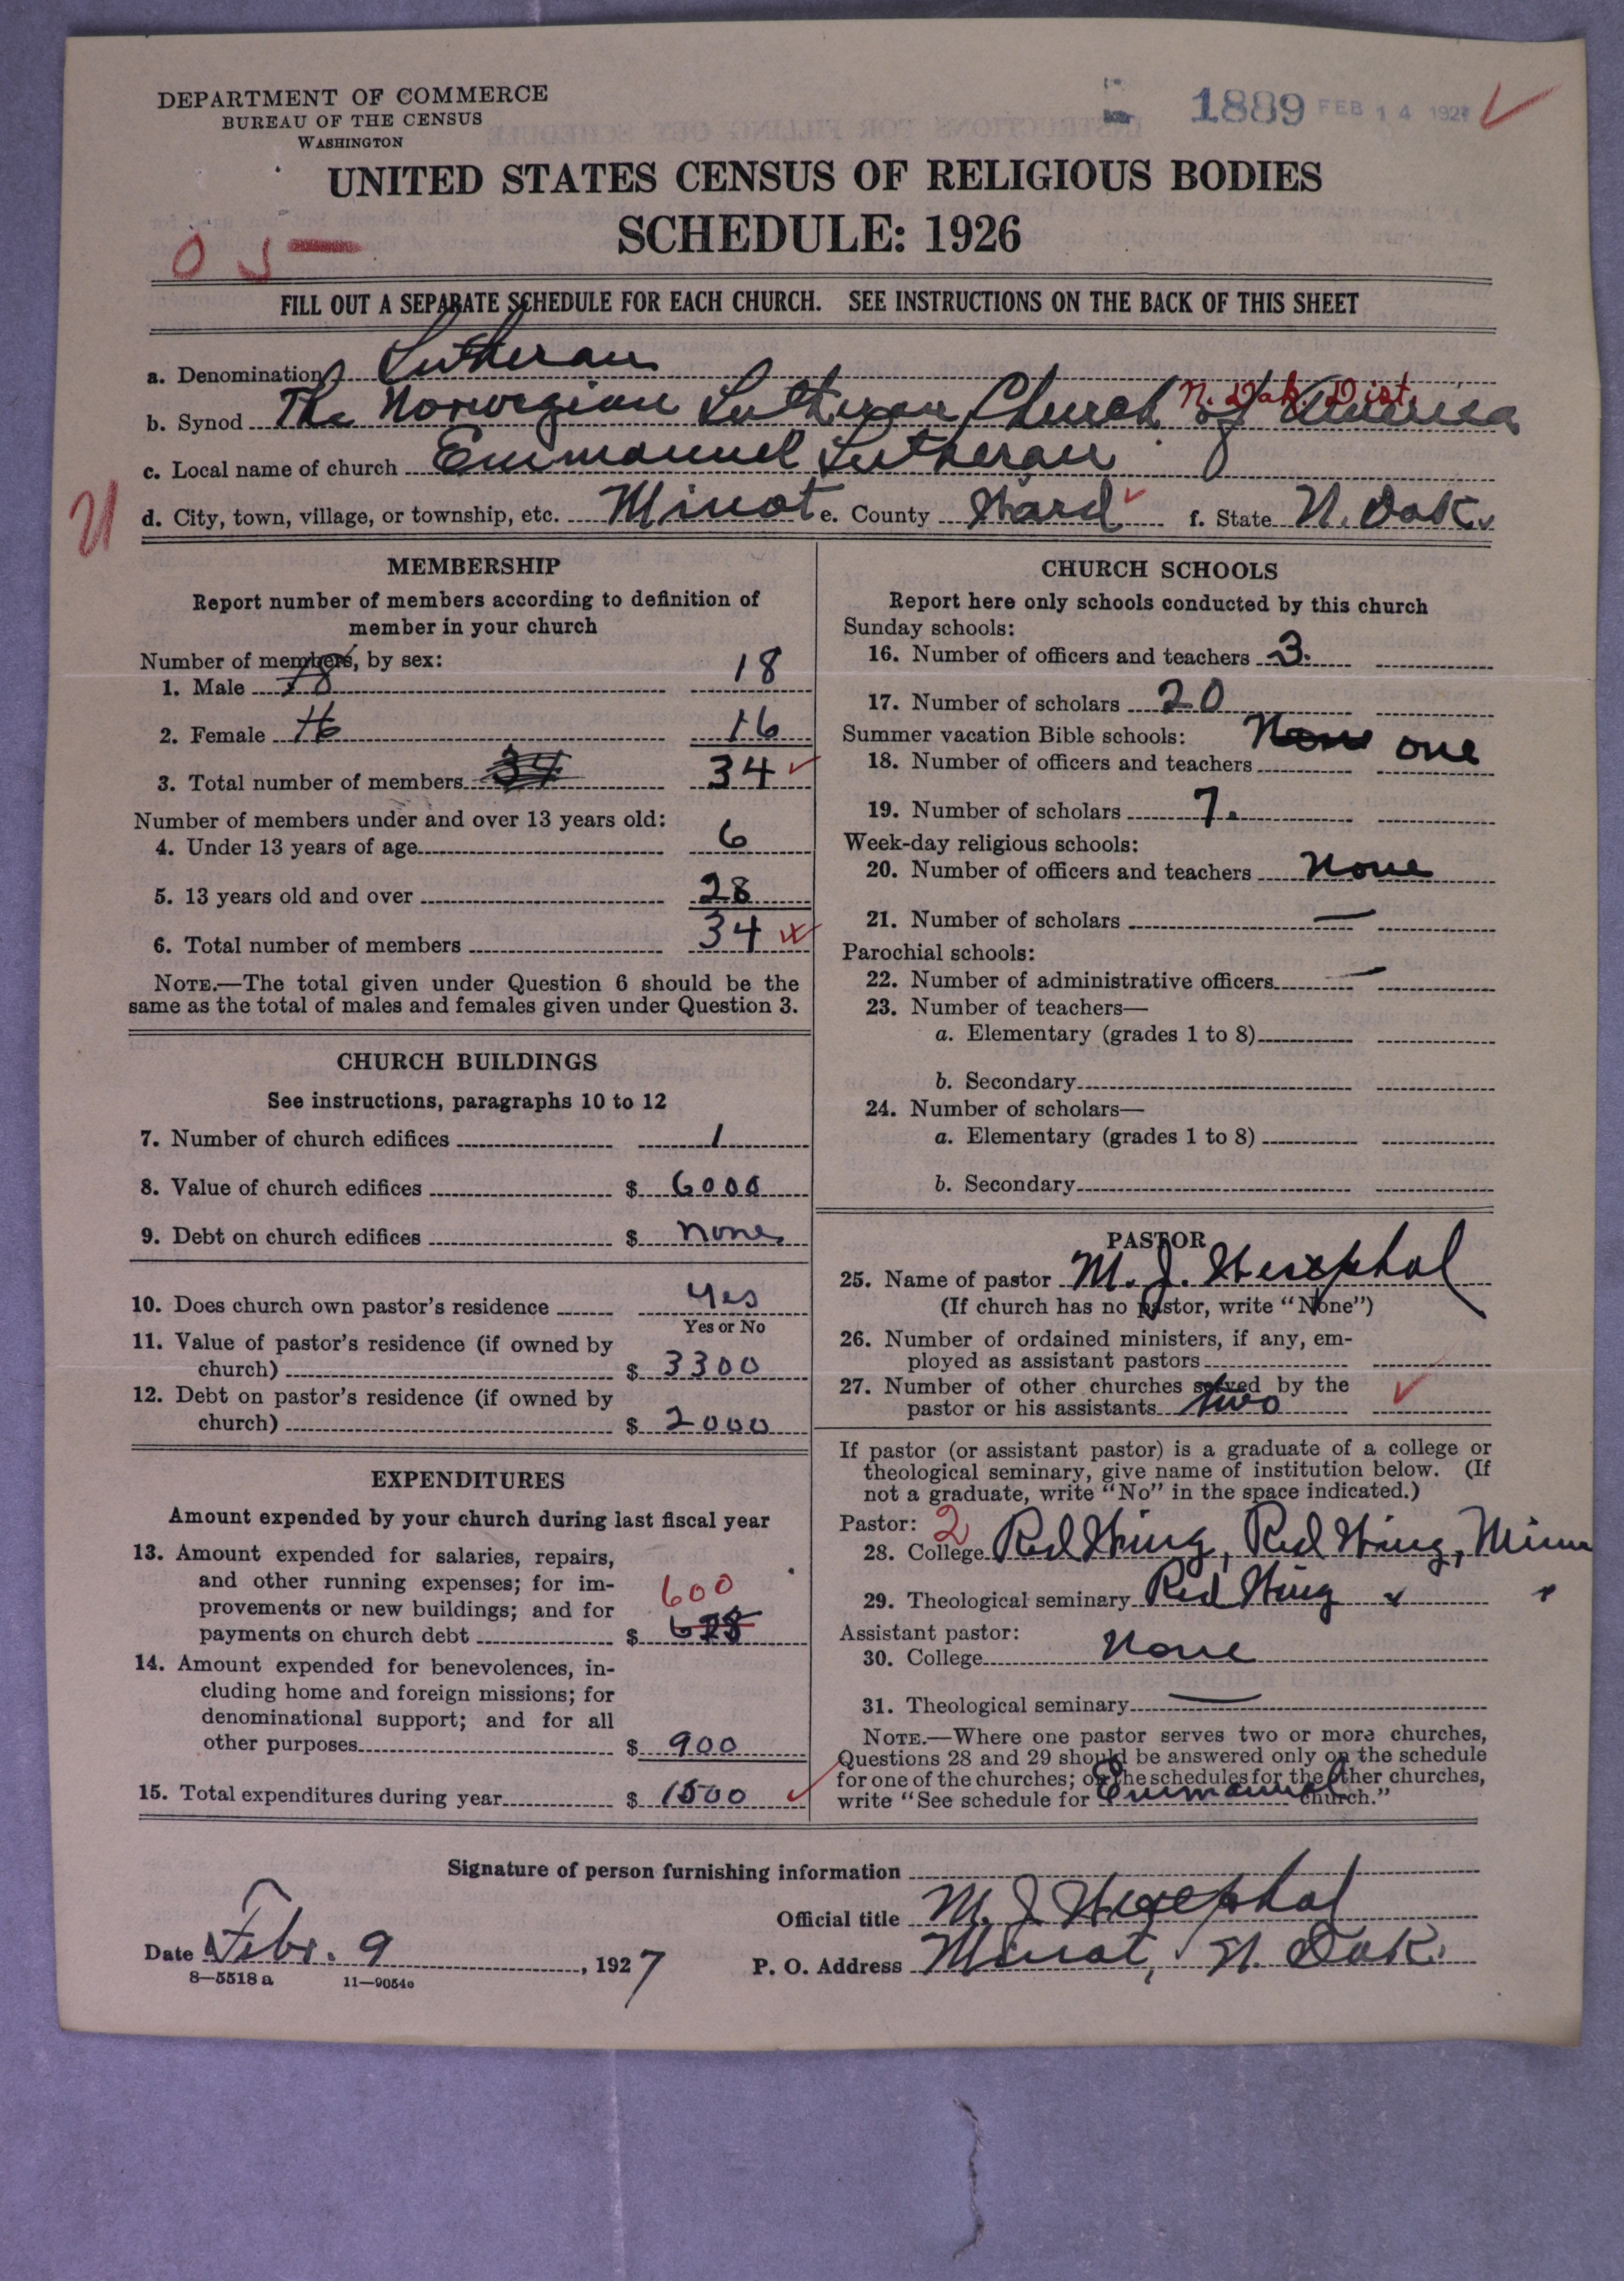 DEPARTMENT OF COMMERCE
BUREAU OF THE CENSUS
WASHINGTON
1889 FEB 14 1927
UNITED STATES CENSUS OF RELIGIOUS BODIES
SCHEDULE: 1926
FILL OUT A SEPARATE SCHEDULE FOR EACH CHURCH. SEE INSTRUCTIONS ON THE BACK OF THIS SHEET
a. Denomination Lutheran
N. Dak. Dist.
b. Synod The Norwegian Lutheran Church of America
c. Local name of church Emmanuel Lutheran
d. City, town, village, or township, etc. Minot e. County Ward f. State N. Dak.
MEMBERSHIP
Report number of members according to definition of
member in your church
Number of members, by sex:
1. Male 18 18
2. Female 16 16
3. Total number of members 34 34
Number of members under and over 13 years old:
4. Under 13 years of age 6
5. 13 years old and over 28
6. Total number of members 34
NOTE.—The total given under Question 6 should be the
same as the total of males and females given under Question 3.
CHURCH BUILDINGS
See instructions, paragraphs 10 to 12
7. Number of church edifices 1
8. Value of church edifices $ 6000
9. Debt on church edifices $ none
10. Does church own pastor's residence Yes
Yes or No
11. Value of pastor's residence (if owned by
church) $ 3300
12. Debt on pastor's residence (if owned by
church) $ 2000
EXPENDITURES
Amount expended by your church during last fiscal year
13. Amount expended for salaries, repairs,
and other running expenses; for im-
provements or new buildings; and for 600
payments on church debt $
14. Amount expended for benevolences, in-
cluding home and foreign missions; for
denominational support; and for all
other purposes $ 900
15. Total expenditures during year $ 1500
CHURCH SCHOOLS
Report here only schools conducted by this church
Sunday schools:
16. Number of officers and teachers 3.
17. Number of scholars 20
Summer vacation Bible schools: None one
18. Number of officers and teachers
19. Number of scholars 7.
Week-day religious schools:
20. Number of officers and teachers None
21. Number of scholars —
Parochial schools:
22. Number of administrative officers —
23. Number of teachers—
a. Elementary (grades 1 to 8)
b. Secondary
24. Number of scholars—
a. Elementary (grades 1 to 8)
b. Secondary
PASTOR
25. Name of pastor M. J. Westphal
(If church has no pastor, write "None")
26. Number of ordained ministers, if any, em-
ployed as assistant pastors
27. Number of other churches served by the
pastor or his assistants two
If pastor (or assistant pastor) is a graduate of a college or
theological seminary, give name of institution below. (If
not a graduate, write "No" in the space indicated.)
Pastor: 2
28. College Red Wing, Red Wing, Minn
29. Theological seminary Red Wing
Assistant pastor:
30. College None
31. Theological seminary —
NOTE.—Where one pastor serves two or more churches,
Questions 28 and 29 should be answered only on the schedule
for one of the churches; on the schedules for the other churches,
write "See schedule for Emmanuel church."
Signature of person furnishing information
Official title M. J. Westphal
Date Febr. 9, 1927 P. O. Address Minot, N. Dak.
8—5518 a 11—9054